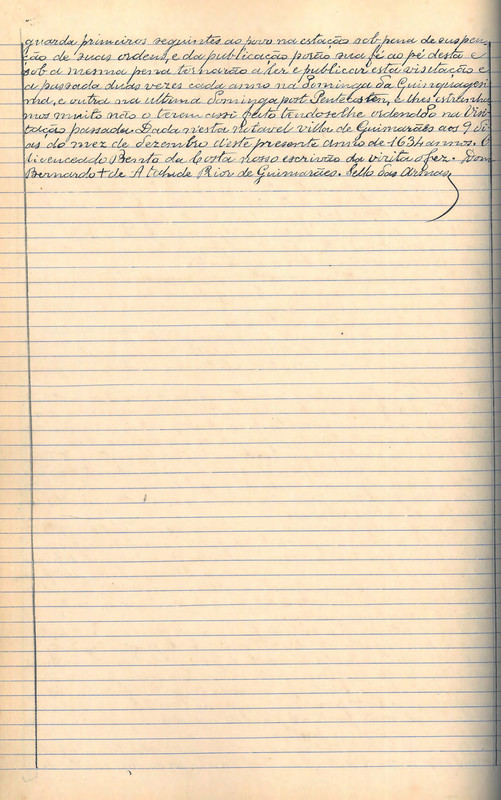 guarda primeiros seguintes ao povo na estação sob pena de suspen-
ção de suas ordens, e da publicação porão sua fé ao pé desta e
sob a mesma pena tornarão a ler e publicar esta visitação e
a passada duas vezes cada anno na dominga da Quinquagesi-
ma, e outra na ultima dominga post Pentecosten, e lhes estranha-
mos muito não o terem assi feito tendoselhe ordendão na visi-
tação passada. Dada nesta notavel villa de Guimarães aos 9 di-
as do mez de dezembro deste presente anno de 1634 annos. O
licenceado Bento da Costa nosso escrivão da visita o fez. Dom
Bernardo + de Atahide Prior de Guimarães. Sello das Armas